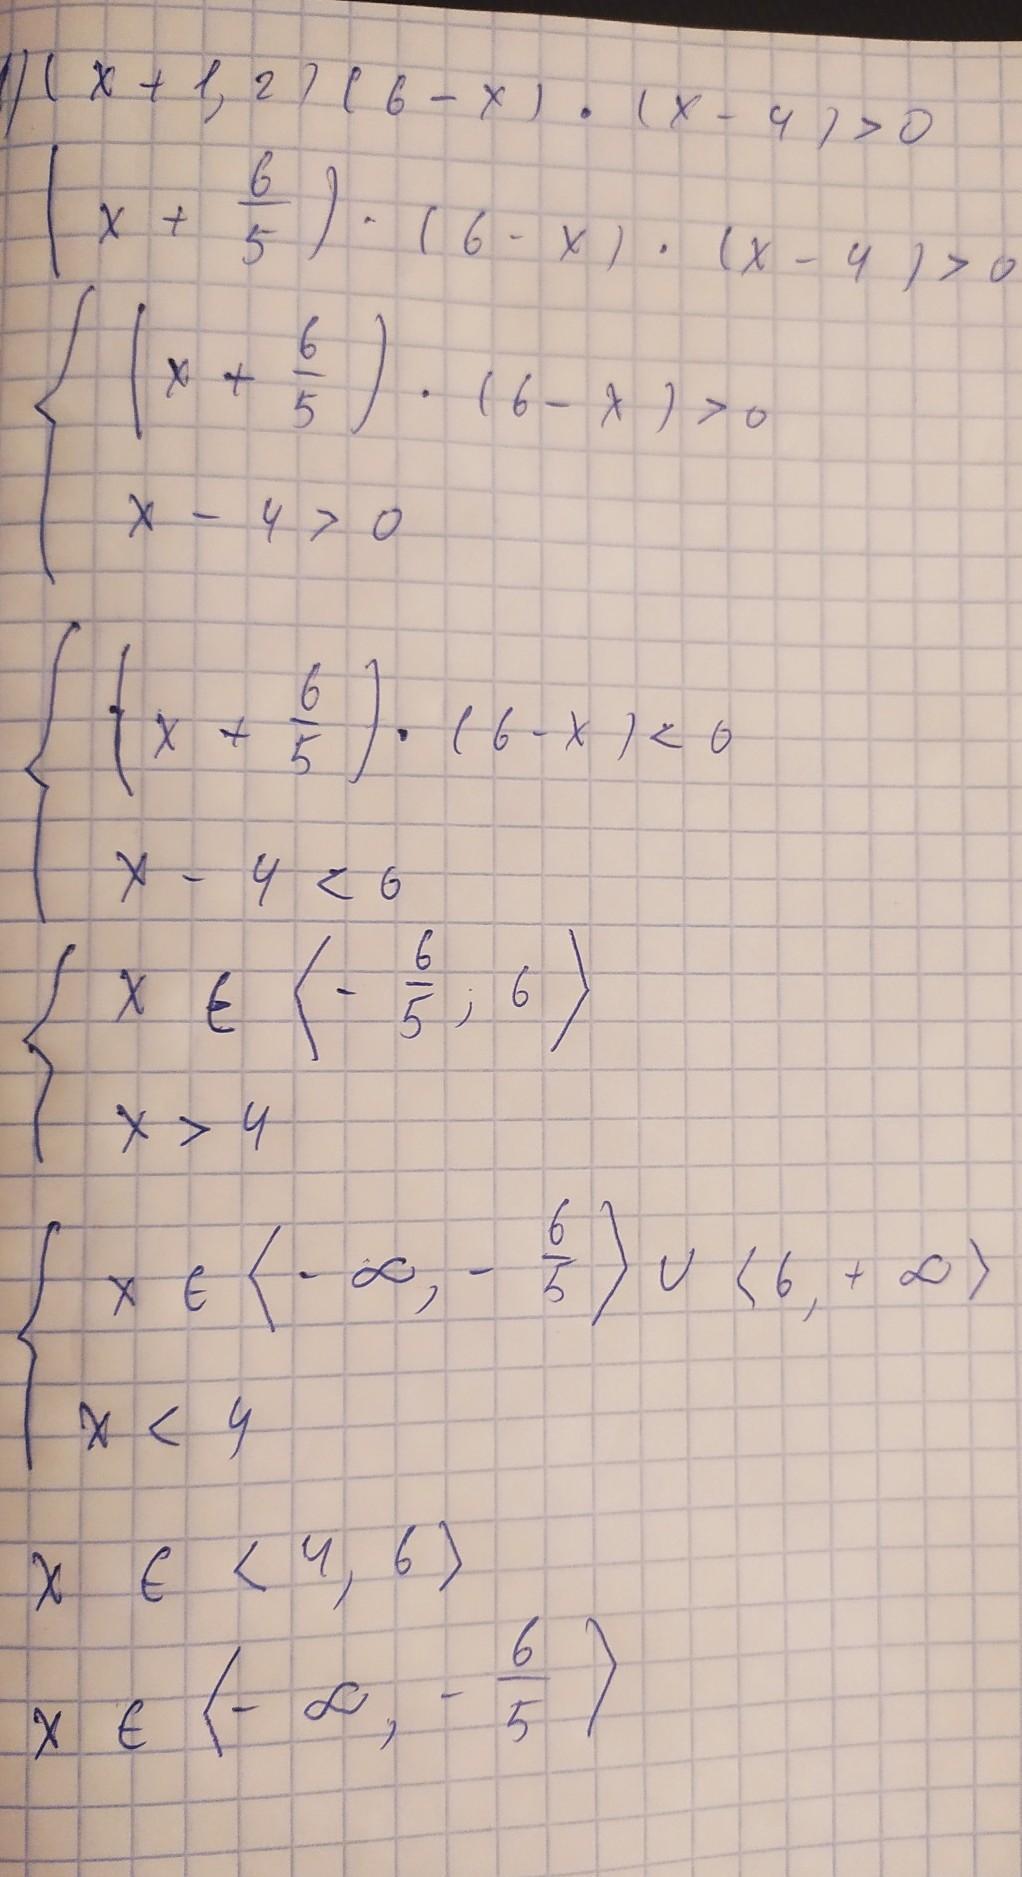 1) (x + 1,2) (6 - x) · (x - 4) > 0
(x + 6/5) · (6 - x) · (x - 4) > 0
{ (x + 6/5) · (6 - x) > 0
x - 4 > 0
{ (x + 6/5) · (6 - x) < 0
x - 4 < 0
{ x ∈ ⟨- 6/5; 6⟩
x > 4
{ x ∈ ⟨- ∞, - 6/5⟩ ∪ ⟨6, + ∞⟩
x < 4
x ∈ ⟨4, 6⟩
x ∈ ⟨- ∞, - 6/5⟩